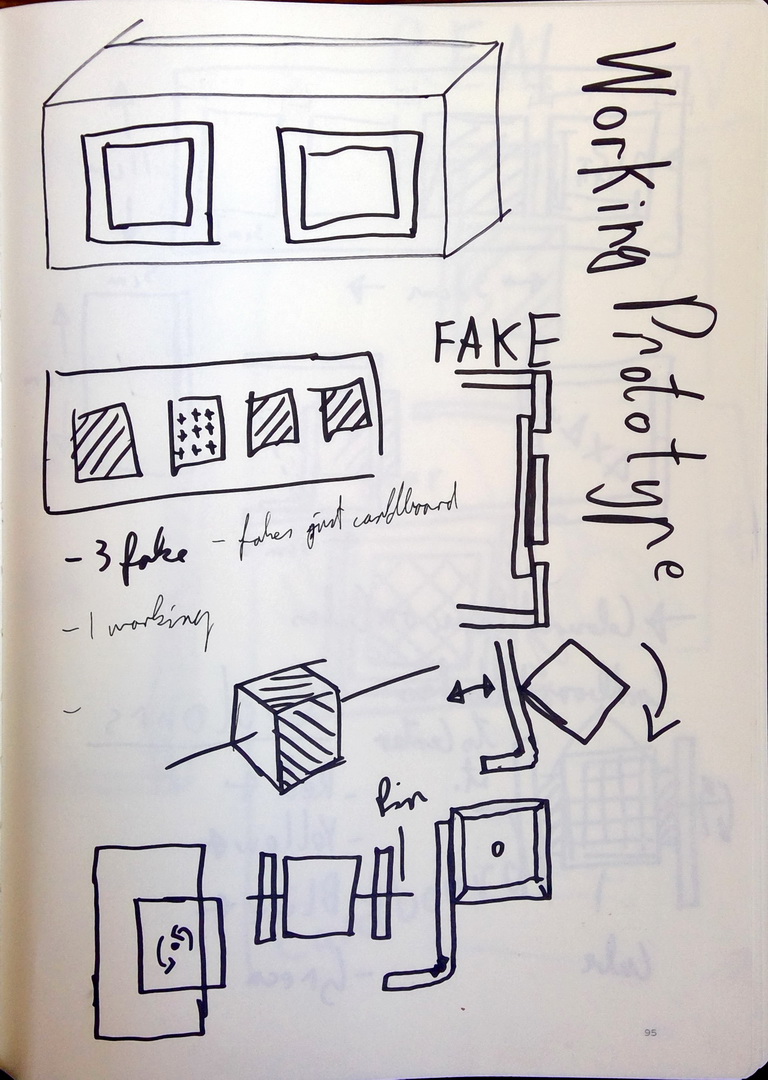 Working Prototype
FAKE
- 3 fake - fakes just cardboard
- 1 working
-
Pin
95